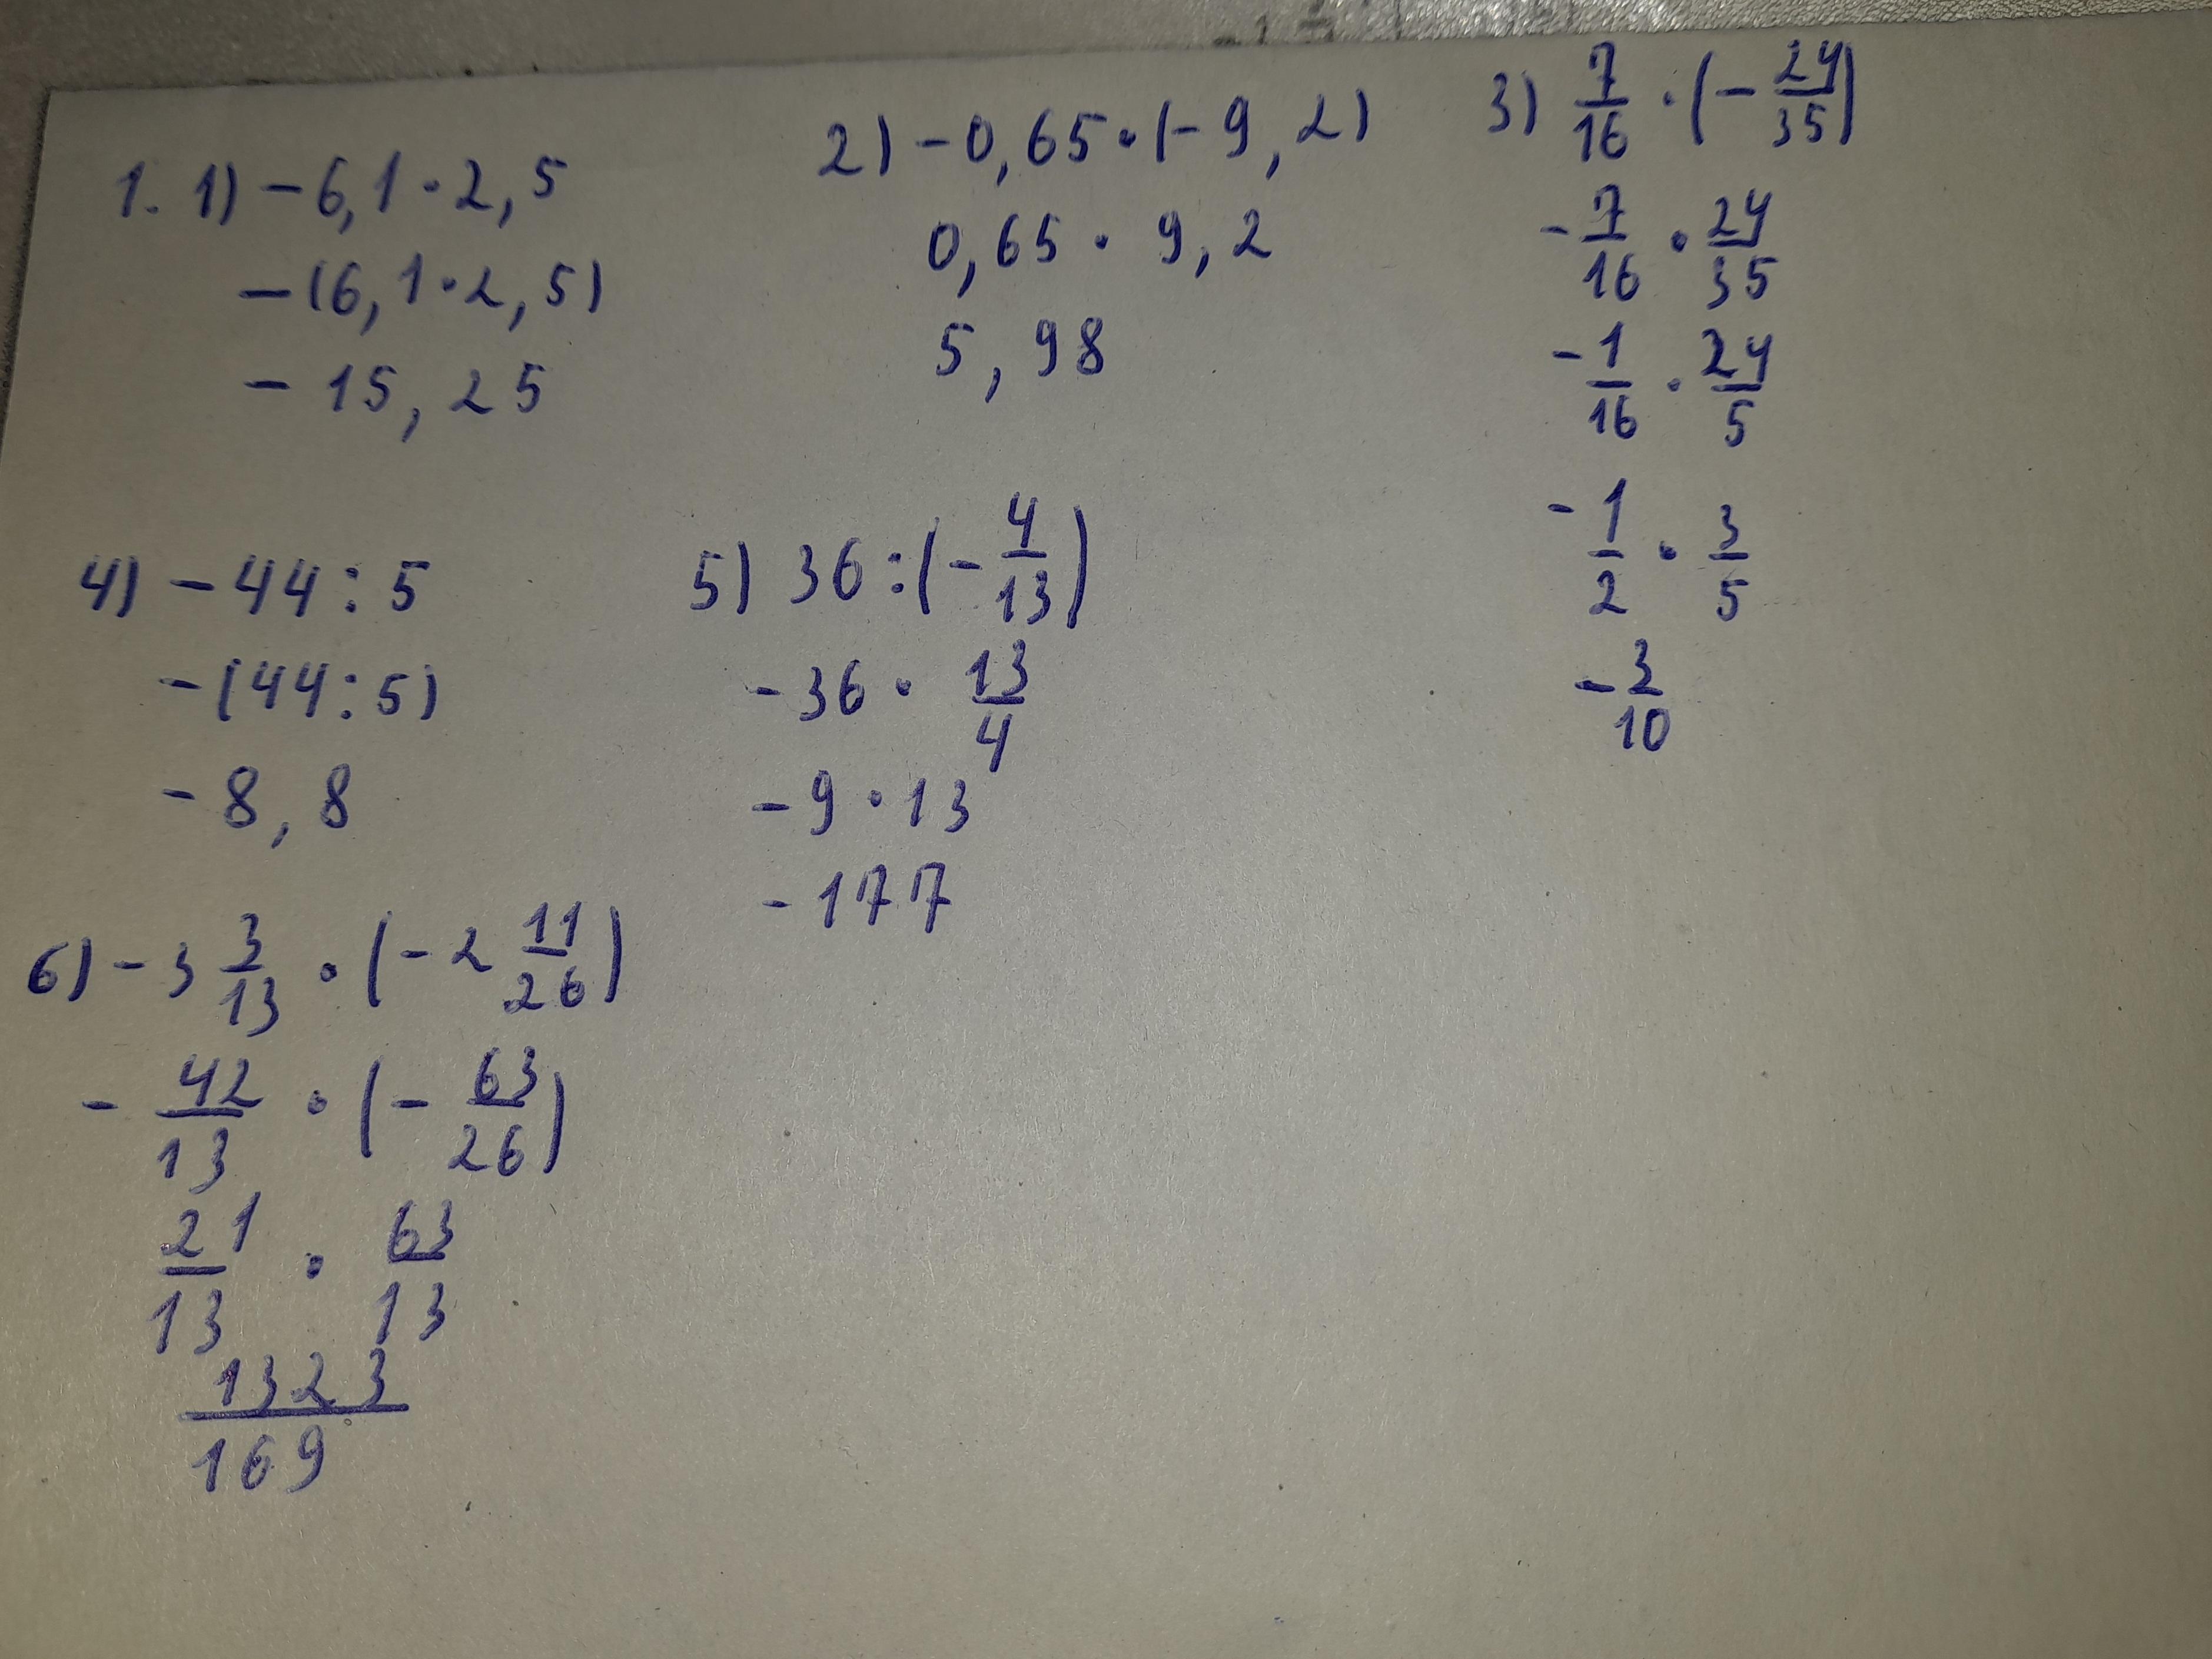 1. 1) -6,1·2,5
-(6,1·2,5)
-15,25
2) -0,65·(-9,2)
0,65·9,2
5,98
3) 7/16 · (-24/35)
-7/16 · 24/35
-1/16 · 24/5
-1/2 · 3/5
-3/10
4) -44:5
-(44:5)
-8,8
5) 36:(-4/13)
-36 · 13/4
-9·13
-177
6) -3 3/13 · (-2 11/26)
-42/13 · (-63/26)
21/13 · 63/13
1323/169